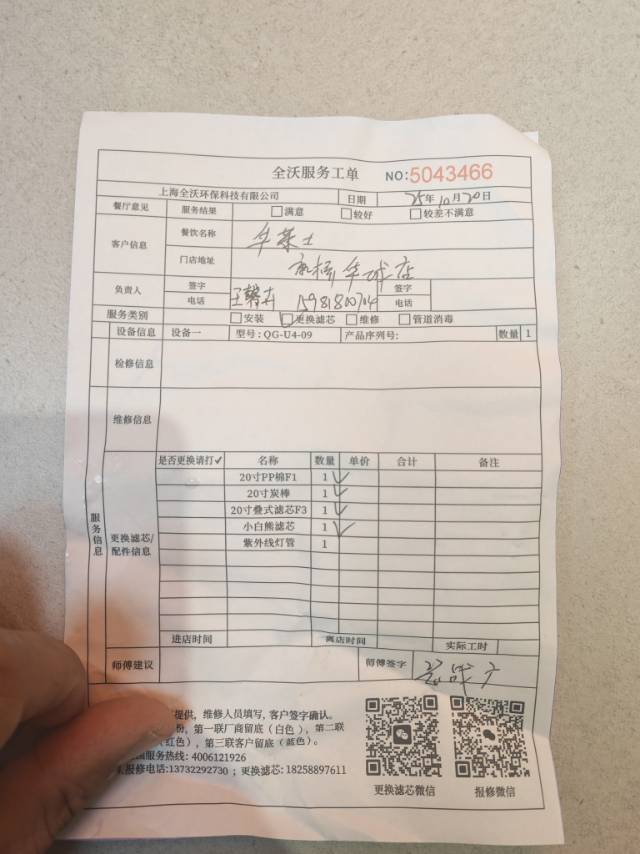 全沃服务工单 NO:5043466
上海全沃环保科技有限公司 日期 25年10月20日
餐厅意见 服务结果 □满意 □较好 □较差不满意
客户信息 餐饮名称 华莱士
门店地址 店
负责人 签字 王 签字
电话 15981800704 电话
服务类别 □安装 □更换滤芯 □维修 □管道消毒
设备信息 设备一 型号:QG-U4-09 产品序列号: 数量 1
检修信息
维修信息
服务信息
更换滤芯/配件信息
是否更换请打✓ 名称 数量 单价 合计 备注
20寸PP棉F1 1 ✓
20寸炭棒 1 ✓
20寸叠式滤芯F3 1 ✓
小白熊滤芯 1 ✓
紫外线灯管 1
进店时间 离店时间 实际工时
师傅建议 师傅签字
提供, 维修人员填写, 客户签字确认。
份, 第一联厂商留底（白色）, 第二联
（红色）, 第三联客户留底（蓝色）。
服务热线: 4006121926
报修电话:13732292730 ; 更换滤芯: 18258897611
更换滤芯微信 报修微信